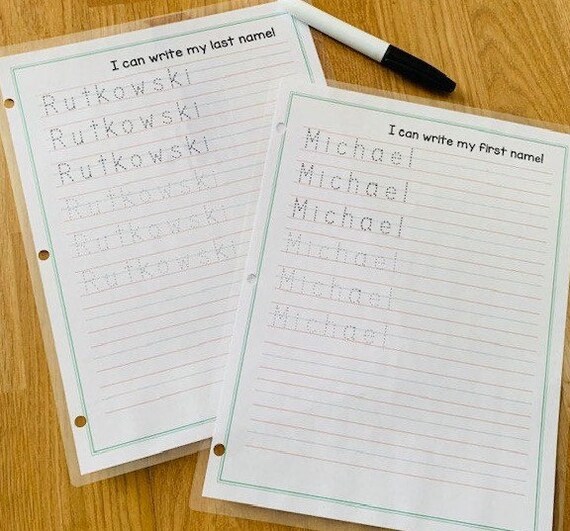 I can write my last name!
Rutkowski
Rutkowski
Rutkowski
Rutkowski
Rutkowski
Rutkowski
I can write my first name!
Michael
Michael
Michael
Michael
Michael
Michael